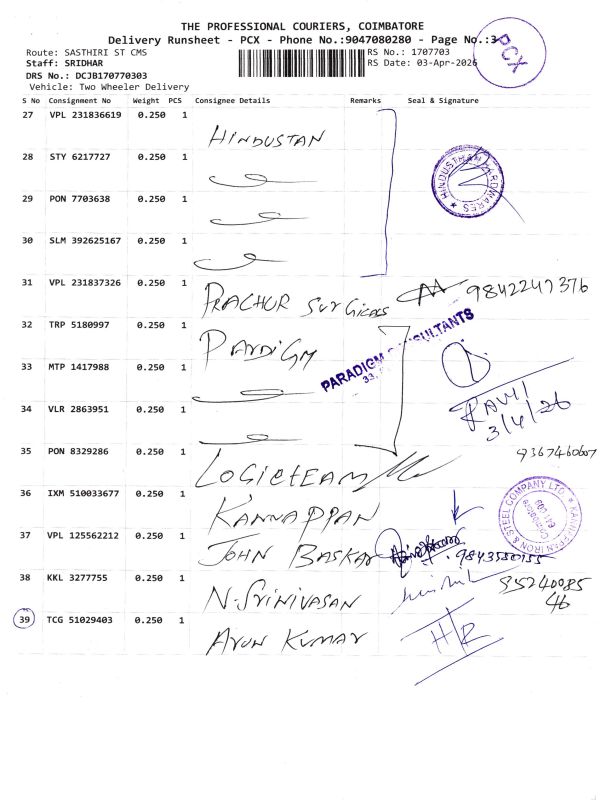 THE PROFESSIONAL COURIERS, COIMBATORE
Delivery Runsheet - PCX - Phone No.:9047080280 - Page No.:3
PCX
Route: SASTHIRI ST CMS
RS No.: 1707703
Staff: SRIDHAR
RS Date: 03-Apr-2026
DRS No.: DCJB170770303
Vehicle: Two Wheeler Delivery
S No Consignment No Weight PCS Consignee Details Remarks Seal & Signature
27 VPL 231836619 0.250 1 HINDUSTAN
28 STY 6217727 0.250 1
HINDUSTHAN HARDWARES
29 PON 7703638 0.250 1
30 SLM 392625167 0.250 1
31 VPL 231837326 0.250 1 PRACHUR SURGICALS 9842247376
32 TRP 5180997 0.250 1 PARDIGM
PARADIGM CONSULTANTS
33,
33 MTP 1417988 0.250 1
34 VLR 2863951 0.250 1
RAVI
3/4/26
35 PON 8329286 0.250 1 LOGICTEAM 9367460607
36 IXM 510033677 0.250 1 KANNAPPAN
KANNAPPAN IRON & STEEL COMPANY LTD.
Coimbatore
641 009
37 VPL 125562212 0.250 1 JOHN BASKAR
38 KKL 3277755 0.250 1 N. SRINIVASAN 95240085
46
39 TCG 51029403 0.250 1 ARUN KUMAR H/R